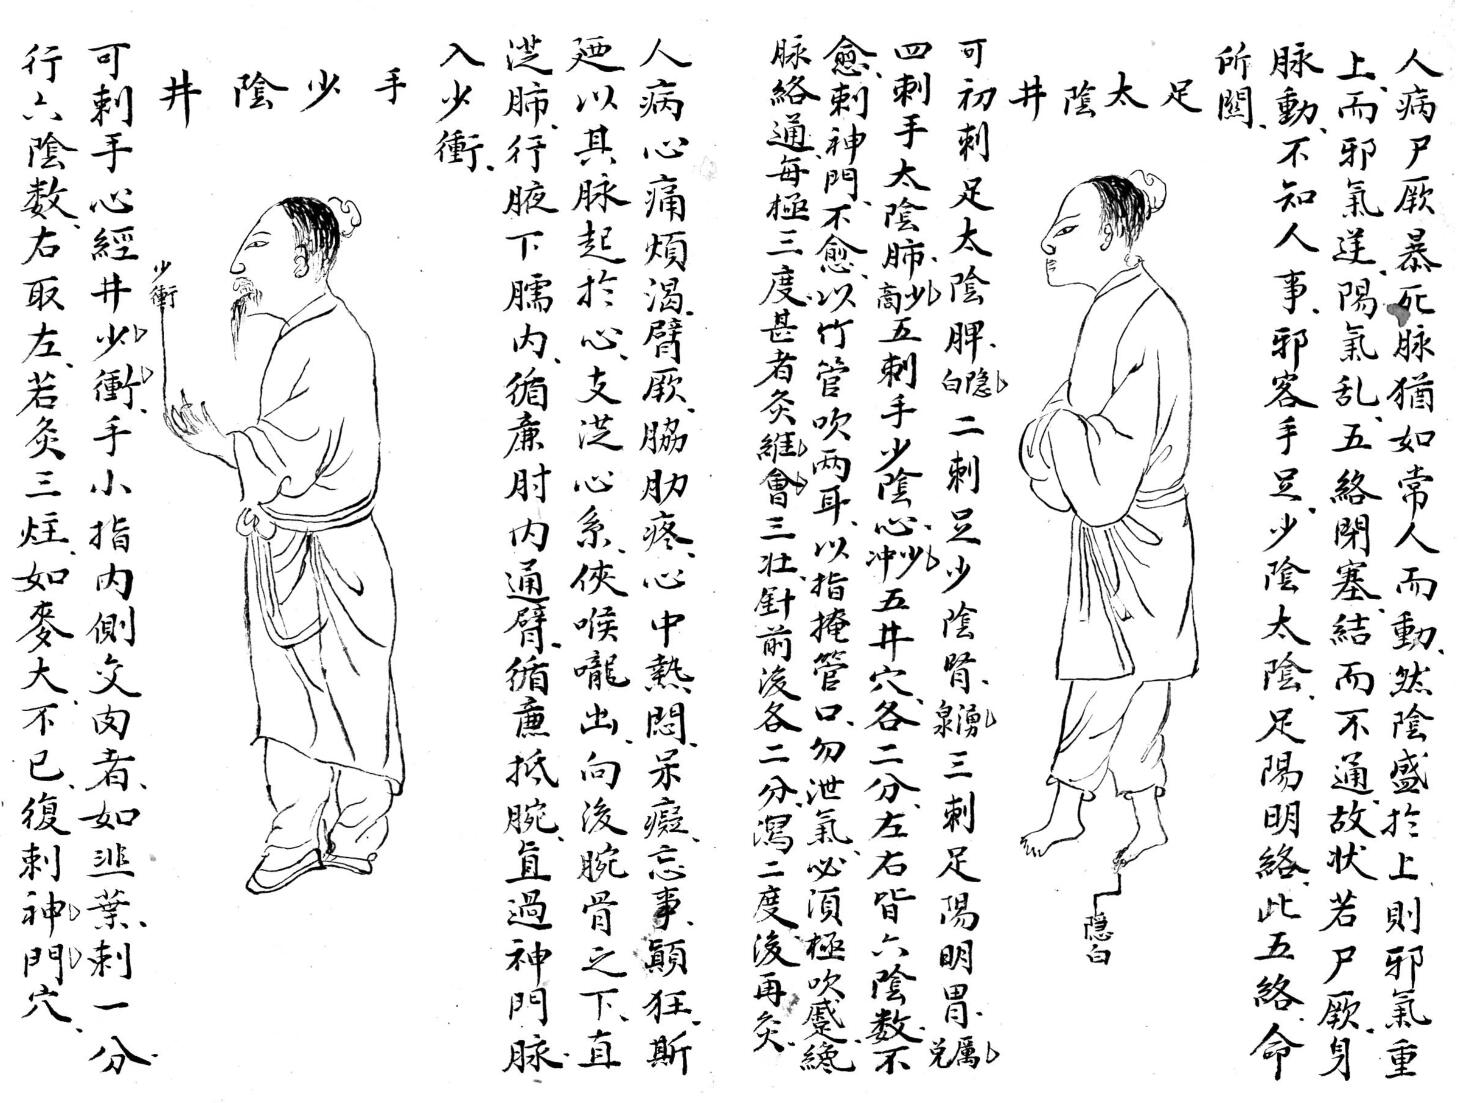 人病尸厥暴死脉猶如常人而動然陰盛於上則邪氣重
上而邪氣逆陽氣乱五絡閉塞結而不通故状若尸厥身
脉動不知人事邪客手足少陰太陰足陽明絡此五絡命
所關
足太陰井
隠白
可初刺足太陰脾隠白二刺足少陰腎湧泉三刺足陽明胃厲兌
四刺手太陰肺少商五刺手少陰心少冲五井穴各二分左右皆六陰数不
愈刺神門不愈以竹管吹两耳以指掩管口勿泄氣必須極吹蹙纔
脉絡通每極三度甚者灸維會三壯針前後各二分瀉二度後再灸
人病心痛煩渴臂厥脇肋疼心中熱悶呆癡忘事顛狂斯
廼以其脉起於心支从心系俠喉嚨出向後腕骨之下直
从肺行腋下臑内循廉肘内通臂循廉抵腕直過神門脉
入少衝
手少陰井
少衝
可刺手心經井少衝手小指内側交肉者如韭葉刺一分
行六陰数右取左若灸三炷如麥大不已復刺神門穴